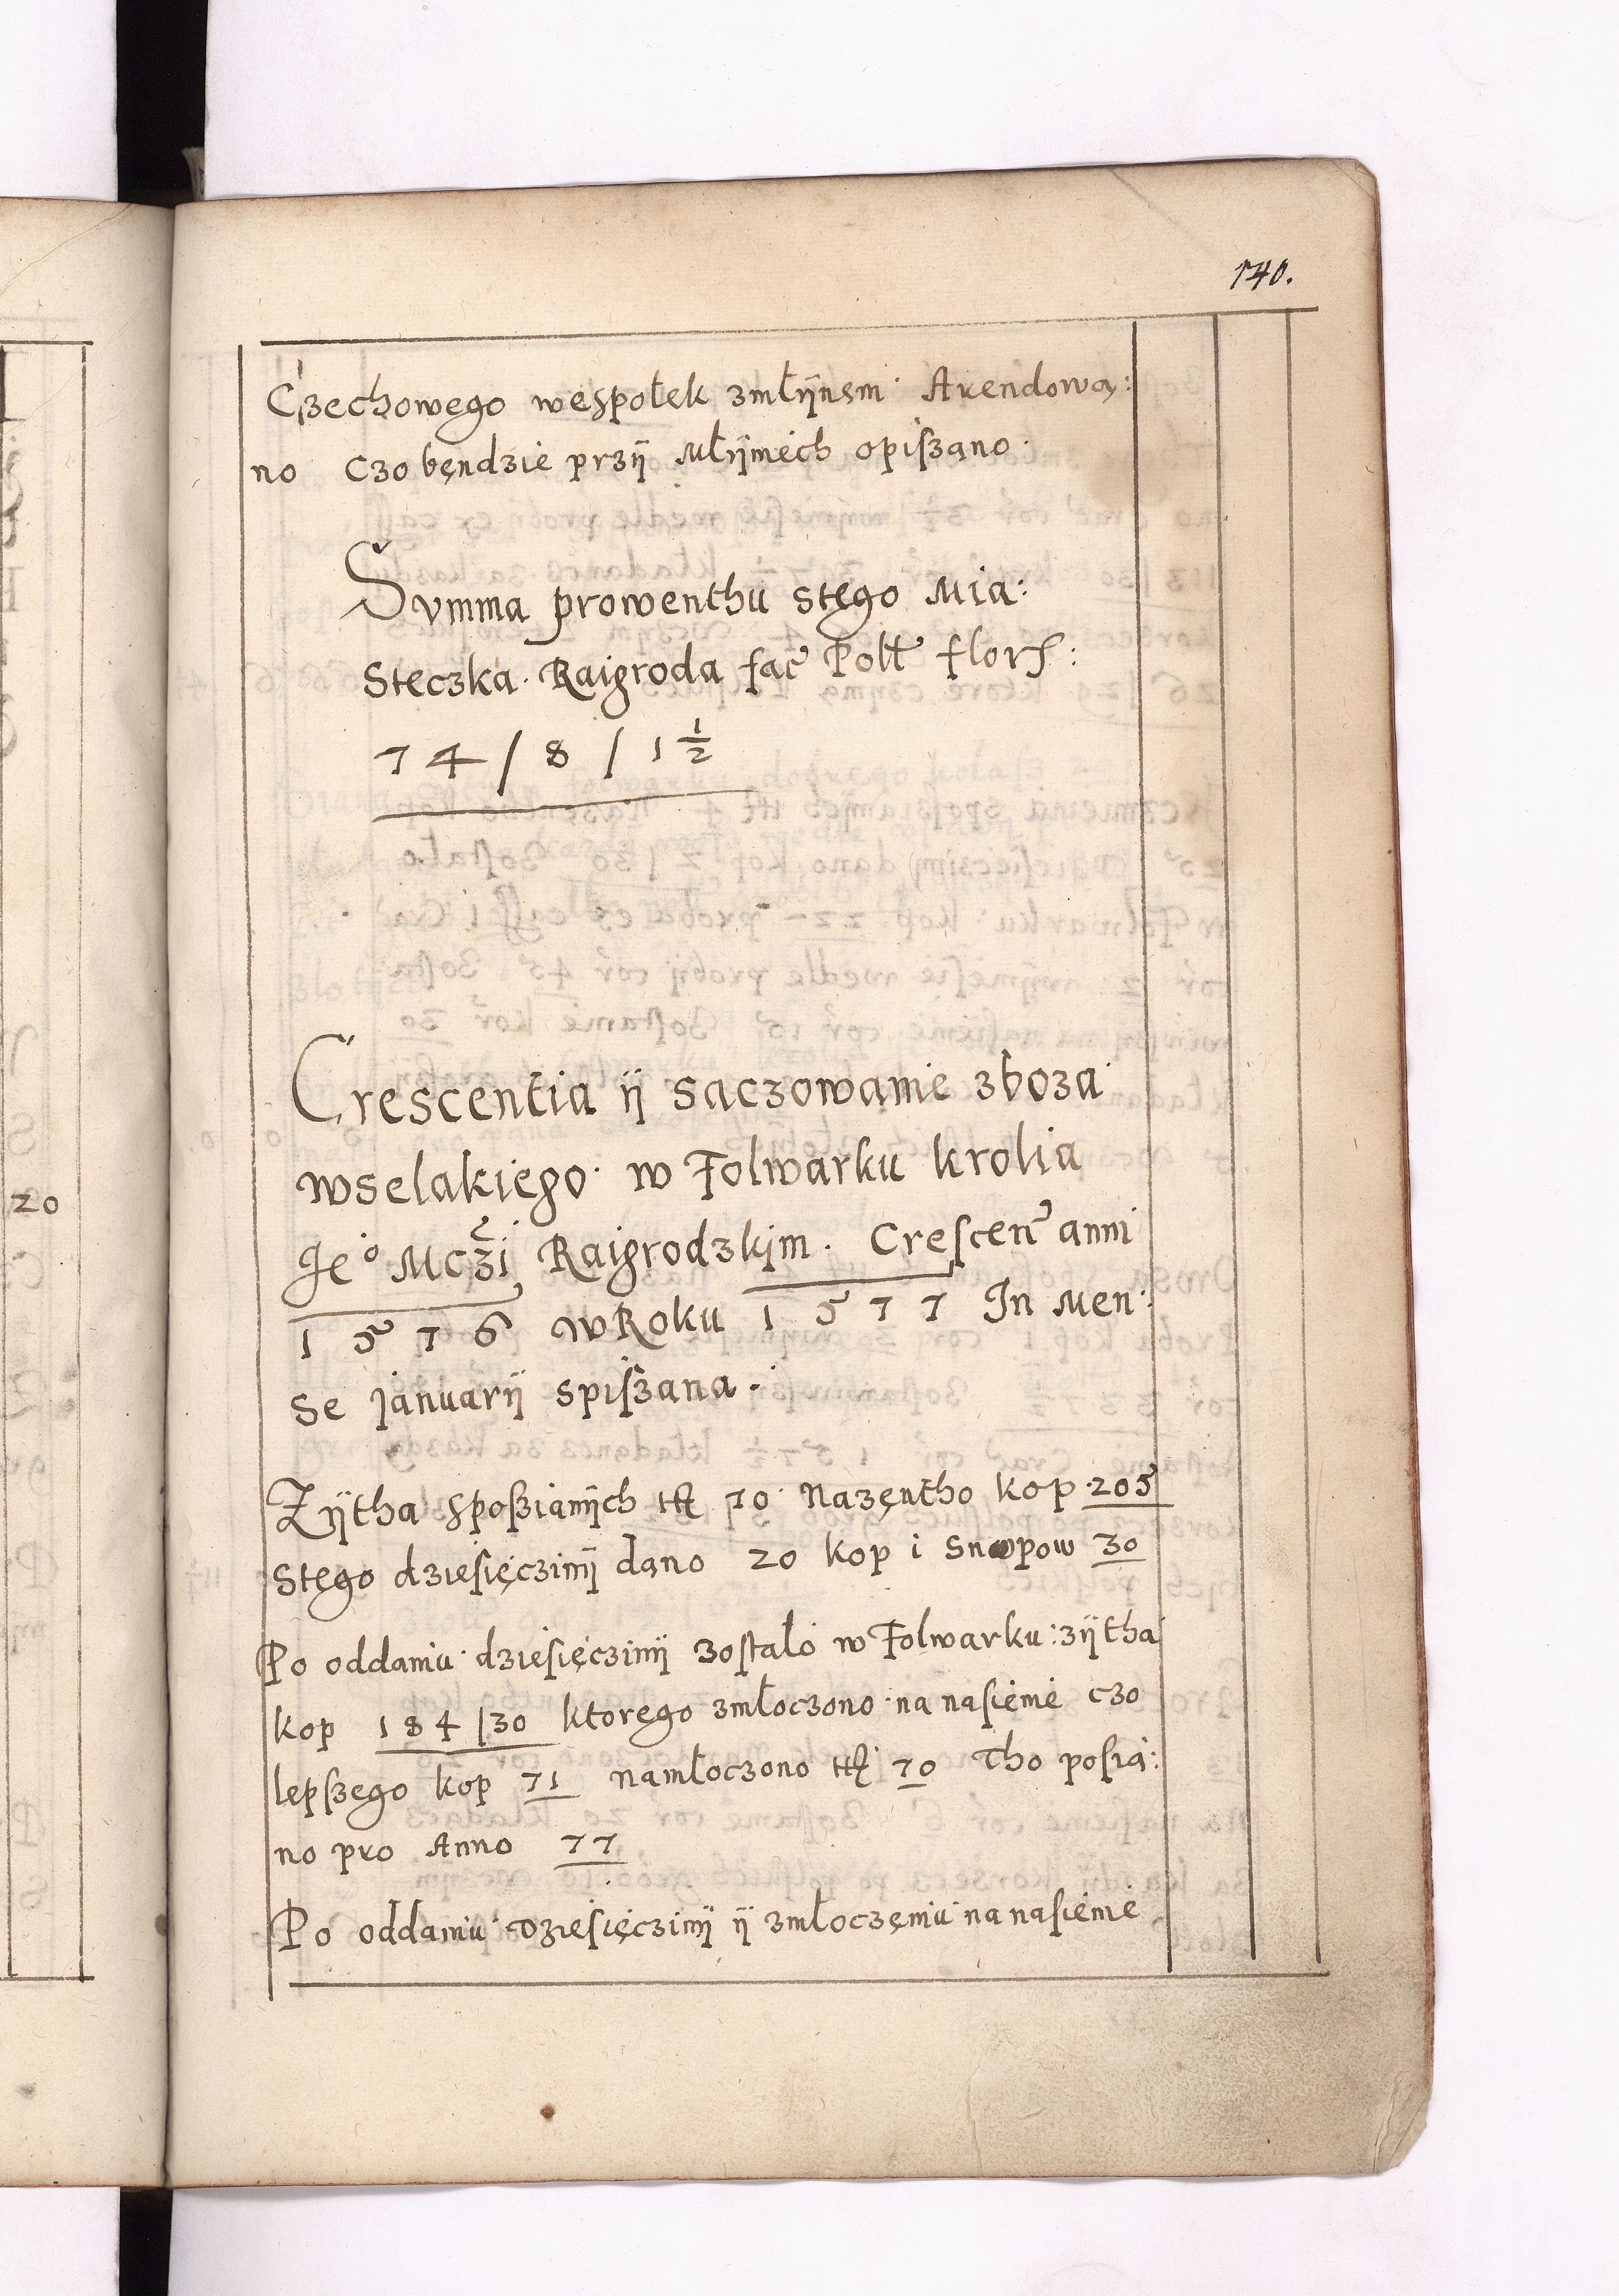 140.
Czechowego wespołek zmłÿnem Arendowa:
no czo bęndzie przÿ Młÿniech opiszano
Summa prowenthu stęgo Mia:
steczka Raigroda fac Poll flor:
74 / 8 / 1 1/2
Crescentia ÿ saczowanie zboza
wselakiego w Folwarku krolia
Je° Mczi Raigrodzkim. Crescen anni
1576 w Roku 1577 In Men:
se Januarÿ spiszana.
Zÿtha sposzianÿch ttᶻ 70 Nazęntho kop 205
stęgo dziesięczinÿ dano 20 kop i snopow 30
Po oddaniu dziesięczinÿ zostało w Folwarku: zÿtha
kop 184 / 30 ktorego zmłoczono na nasienie czo
lepszego kop 71 namłoczono ttᶻ 70 Tho posia:
no pro Anno 77
Po oddaniu dziesięczinÿ ÿ zmłoczęniu na nasienie
20